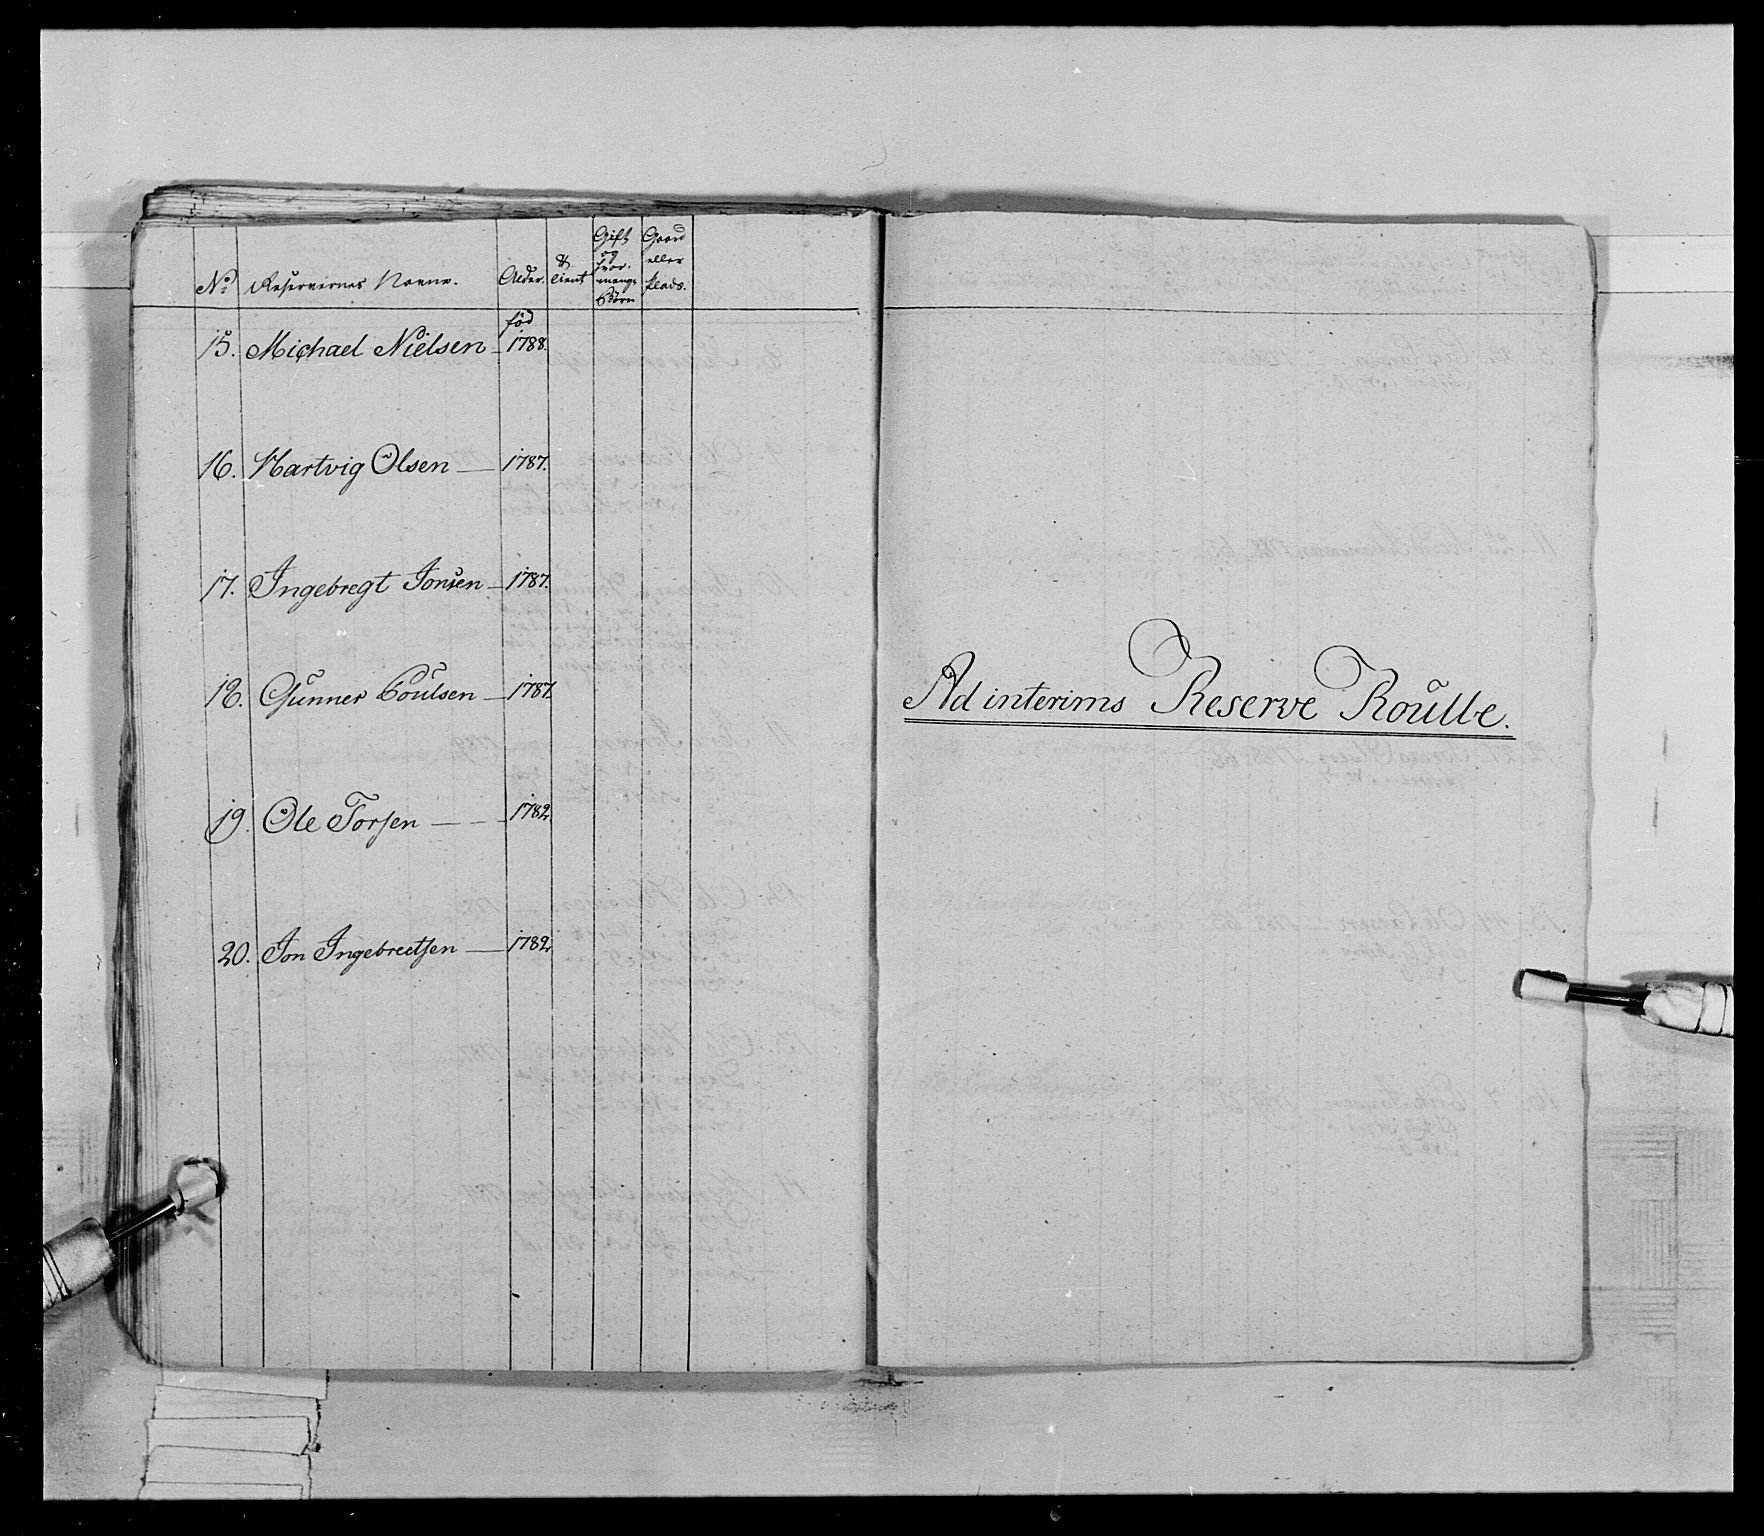 No Reservernes Navne. Alder. tient Gift og hvor mange Börn Gaard eller Plads.
fød
15. Michael Nielsen 1788.
16. Hartvig Olsen 1787.
17. Ingebregt Jonsen 1787.
18. Gunner Poulsen 1787.
19. Ole Torsen 1782
20. Jon Ingebreetsen 1782
Ad interims Reserve Roulle.